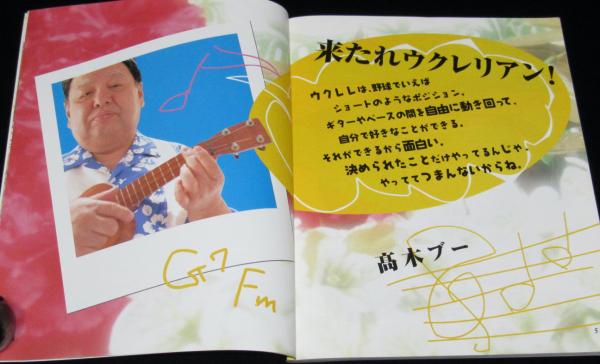 来たれウクレリアン!
ウクレレは、野球でいえば
ショートのようなポジション。
ギターやベースの間を自由に動き回って、
自分で好きなことができる。
それができるから面白い。
決められたことだけやってるんじゃ、
やっててつまんないからね。
高木ブー
G7
Fm
5